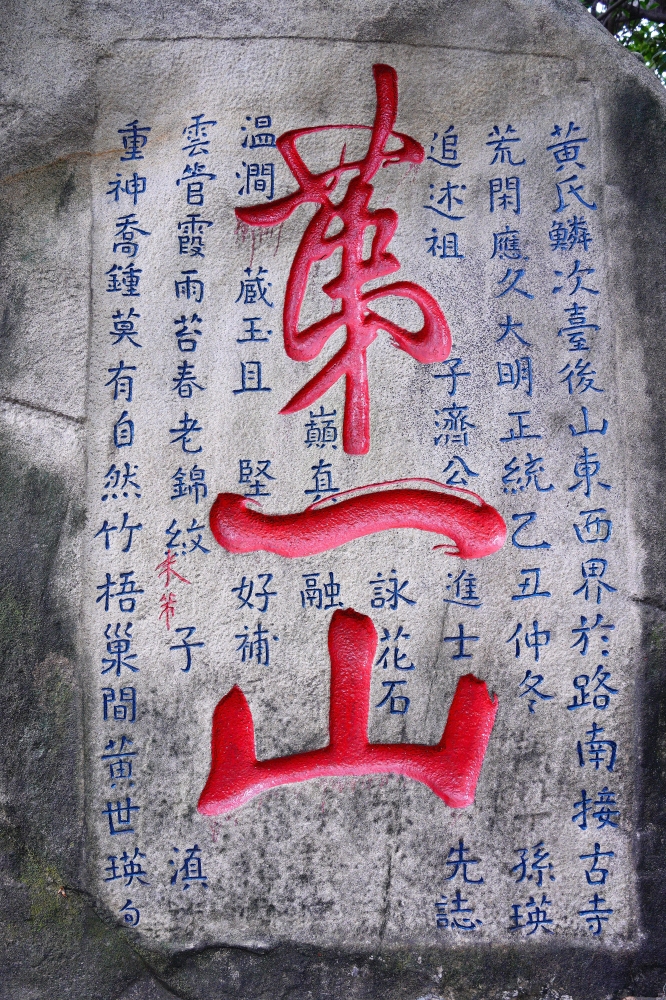 第一山
黃氏鱗次臺後山東西界於路南接古寺
荒閑應久大明正統乙丑仲冬 孫瑛
追述祖 子濟公 進士 先誌
詠花石
巔真 融
温澗 蔵玉且 堅 好補
雲管霞雨苔春老錦紋 子 滇
重神喬鍾莫有自然竹梧巢間黄世瑛句